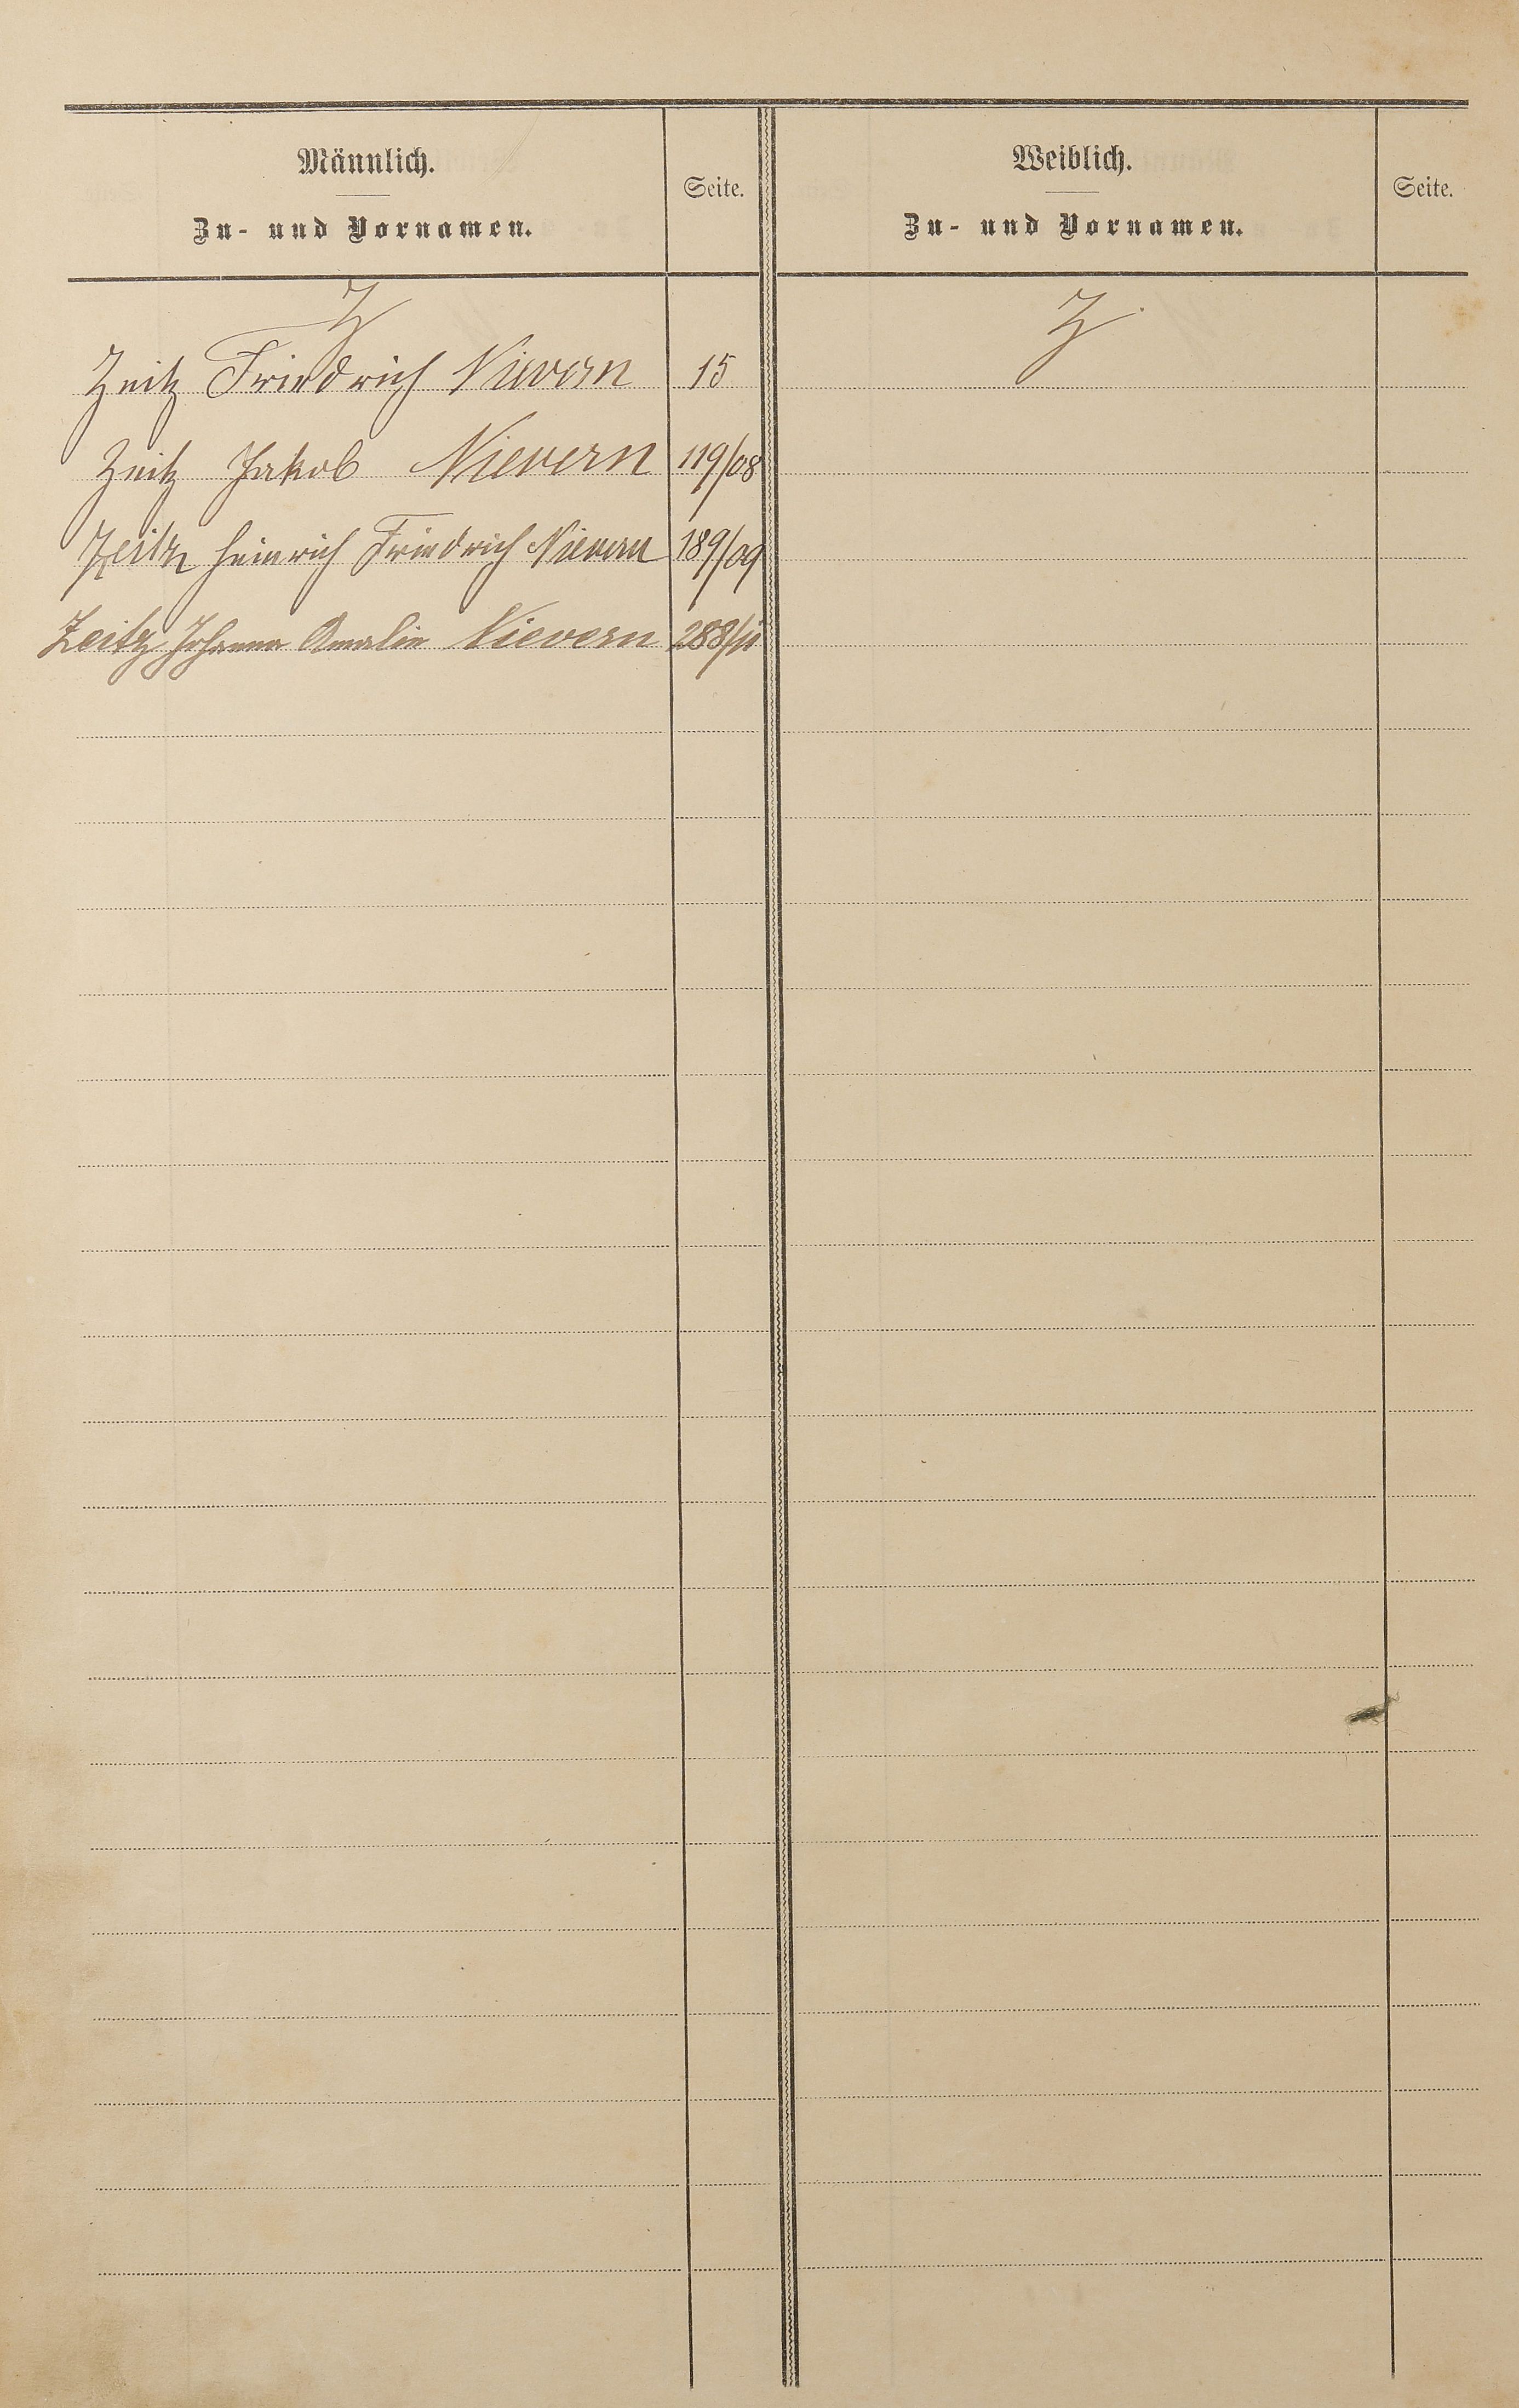 Männlich.
Zu- und Vornamen.
Seite.
Z
Zeitz Friedrich Nievern 15
Zeitz Jakob Nievern 119/08
Zeitz Heinrich Friedrich Nievern 189/09
Zeitz Johanna Amalie Nievern 288/11
Weiblich.
Zu- und Vornamen.
Seite.
Z